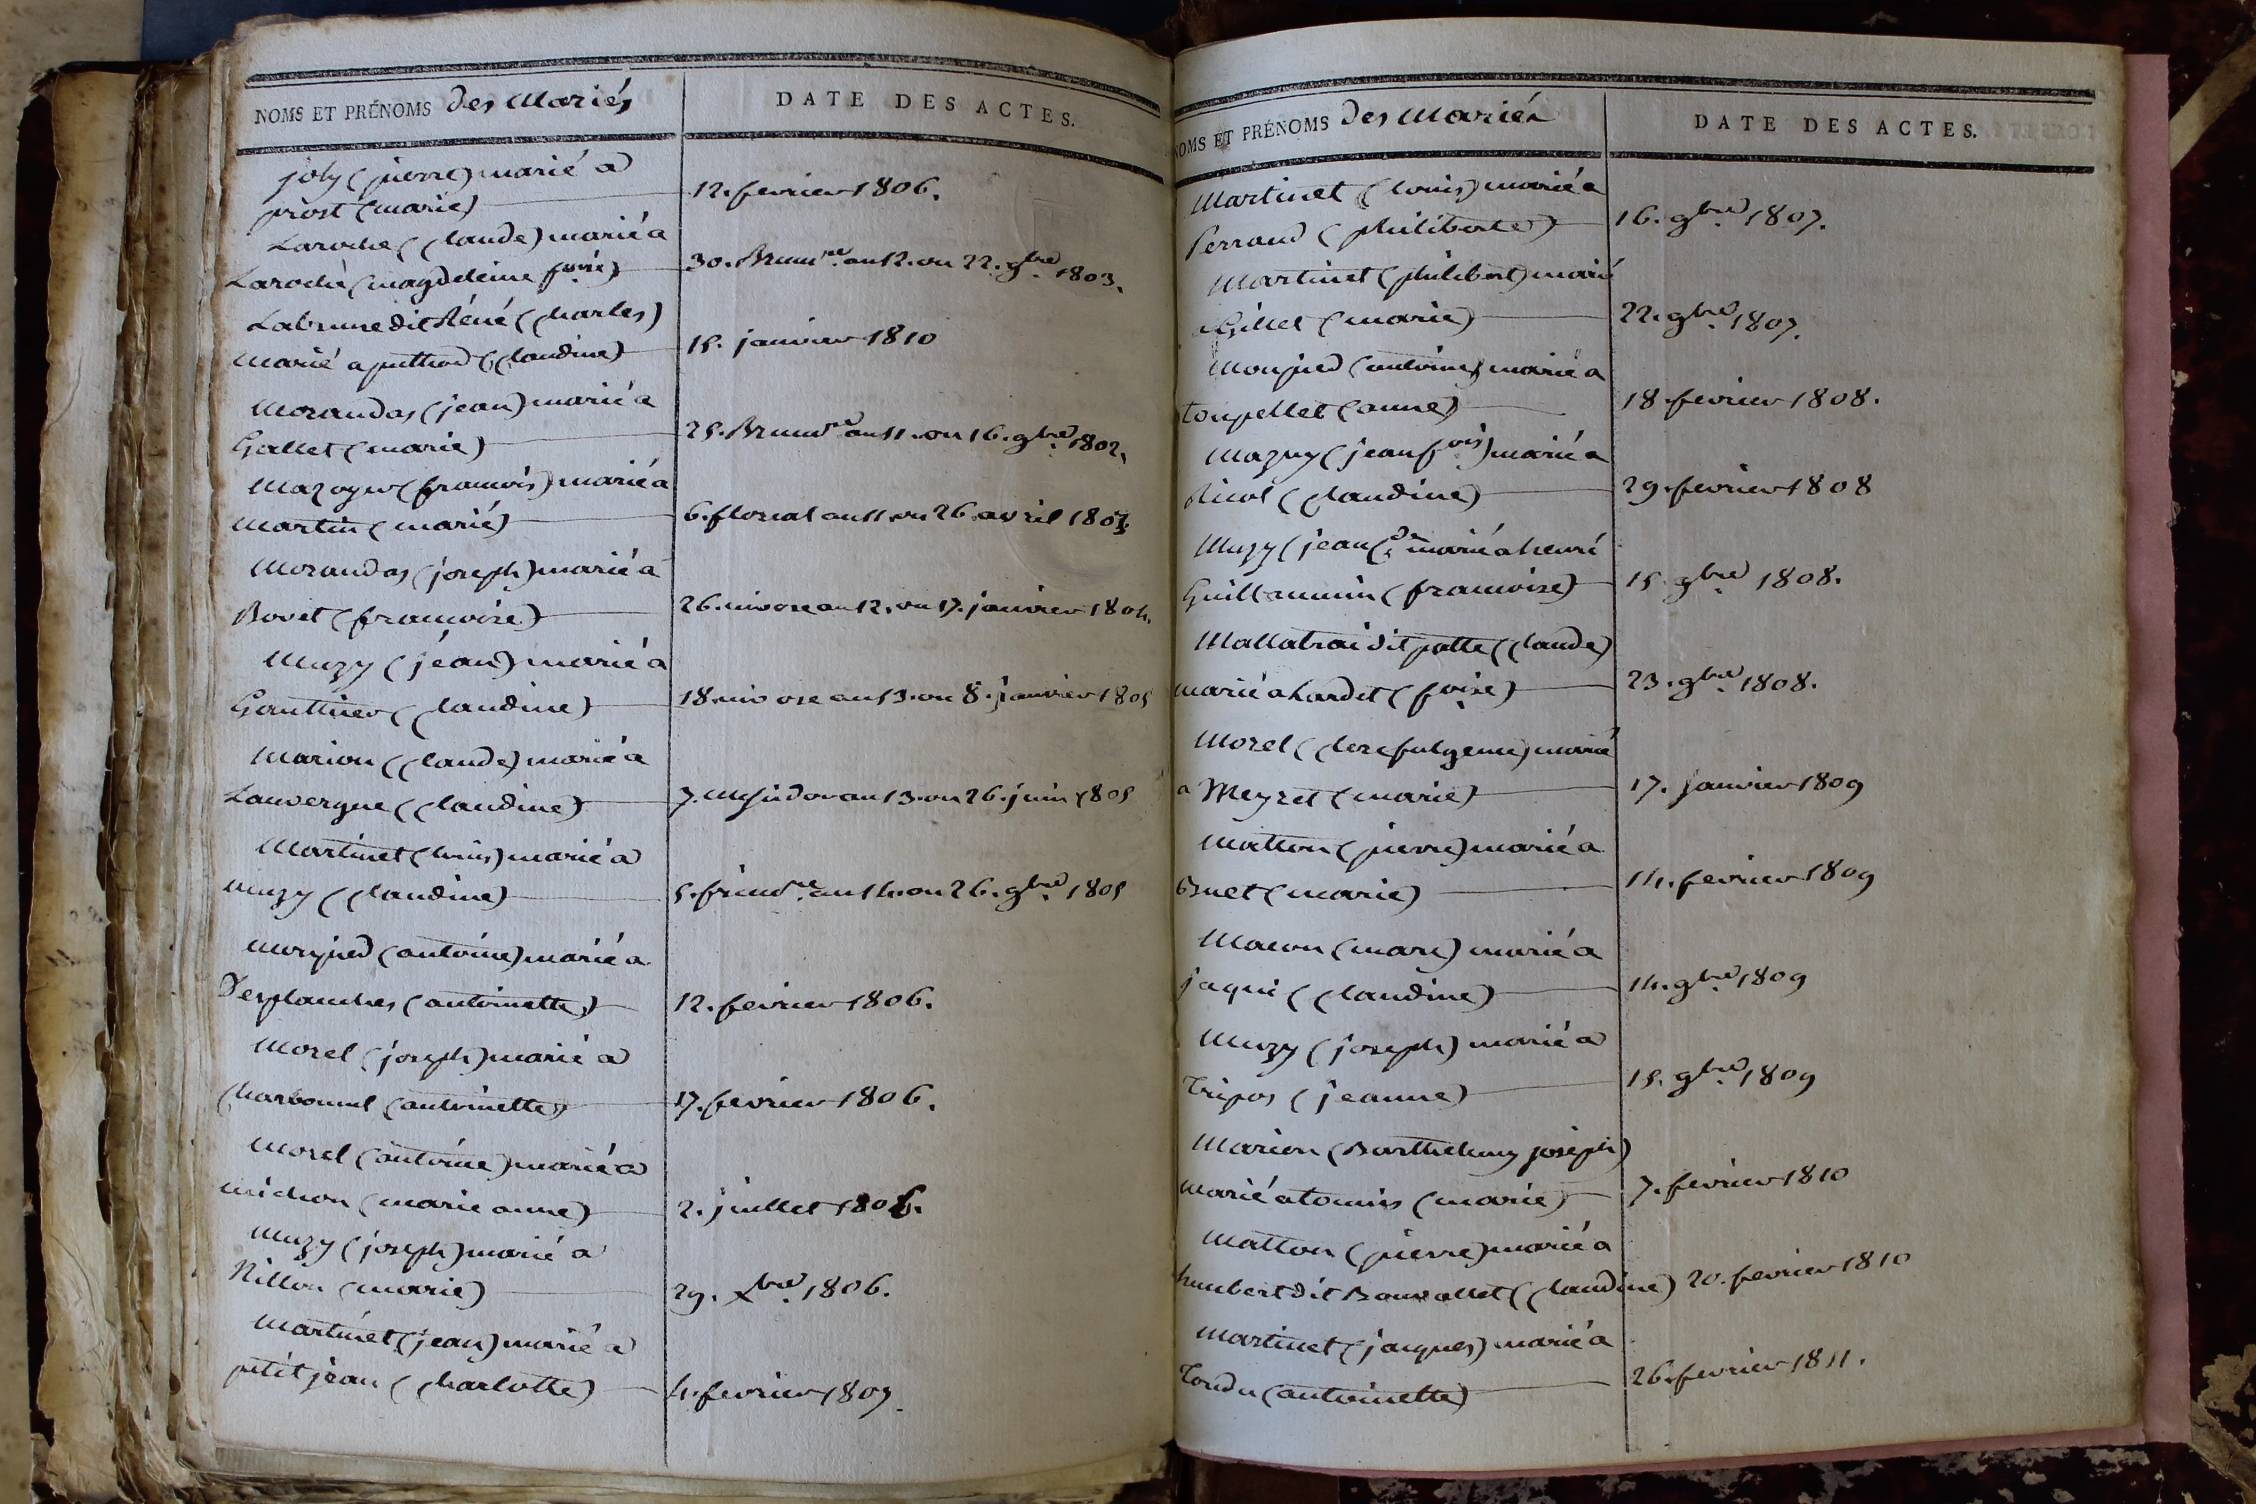 NOMS ET PRÉNOMS des Mariés
DATE DES ACTES.
joly (pierre) marié a
prost (marie)
12. fevrier 1806.
Laroche (claude) marié a
Laroche (magdeleine fçoise)
30. Brumre an 12. ou 22. 9bre 1803.
Labrune dit Réné (charles)
marié a puthod (claudine)
15. janvier 1810
Morandas (jean) marié a
Gallet (marie)
25. Brumre an 11. ou 16. 9bre 1802.
Mazoyer (francois) marié a
Martin (marie)
6. floreal an 11. ou 26 avril 1803.
Morandas (joseph) marié a
Bovet (francoise)
26. nivose an 12. ou 17. janvier 1804.
Muzy (jean) marié a
Gauthier (claudine)
18. nivose an 13. ou 8. janvier 1805
Marion (claude) marié a
Lauvergne (claudine)
7. Messidor an 13. ou 26. juin 1805
Martinet (louis) marié a
Muzy (claudine)
5. frimre an 14. ou 26. 9bre 1805
Monpied (antoine) marié a
Desplanches (antoinette)
12. fevrier 1806.
Morel (joseph) marié a
Charbonnel (antoinette)
17. fevrier 1806.
Morel (antoine) marié a
michon (marie anne)
2. juillet 1806.
Muzy (joseph) marié a
Nillon (marie)
29. Xbre 1806.
Martinet (jean) marié a
petitjean (charlotte)
4. fevrier 1807.
NOMS ET PRÉNOMS des Mariés
DATE DES ACTES.
Martinet (louis) marié a
Perraud (philiberte)
16. 9bre 1807.
Martinet (philibert) marié
a Gillet (marie)
22. 9bre 1807.
Monpied (antoine) marié a
Toupellet (anne)
18 fevrier 1808.
Mazuy (jean fois) marié a
Nicol (claudine)
29. fevrier 1808
Muzy (jean marié a henri
Guillaumin (francoise)
15 9bre 1808.
Mallatrai dit patte (claude)
marié a hardet (foise)
23. 9bre 1808.
Morel marié
a Meyret (marie)
17. janvier 1809
Matton (pierre) marié a
Buet (marie)
14. fevrier 1809
Macon (marc) marié a
jaqui (claudine)
14. 9bre 1809
Muzy (joseph) marié a
Tripos (jeanne)
15. 9bre 1809
Marion (Barthelemy joseph)
marié a (marie)
7. fevrier 1810
Matton (pierre) marié a
humbert dit Bonvallet (claudine) 20. fevrier 1810
Martinet (jacques) marié a
Tondu (antoinette)
26. fevrier 1811.